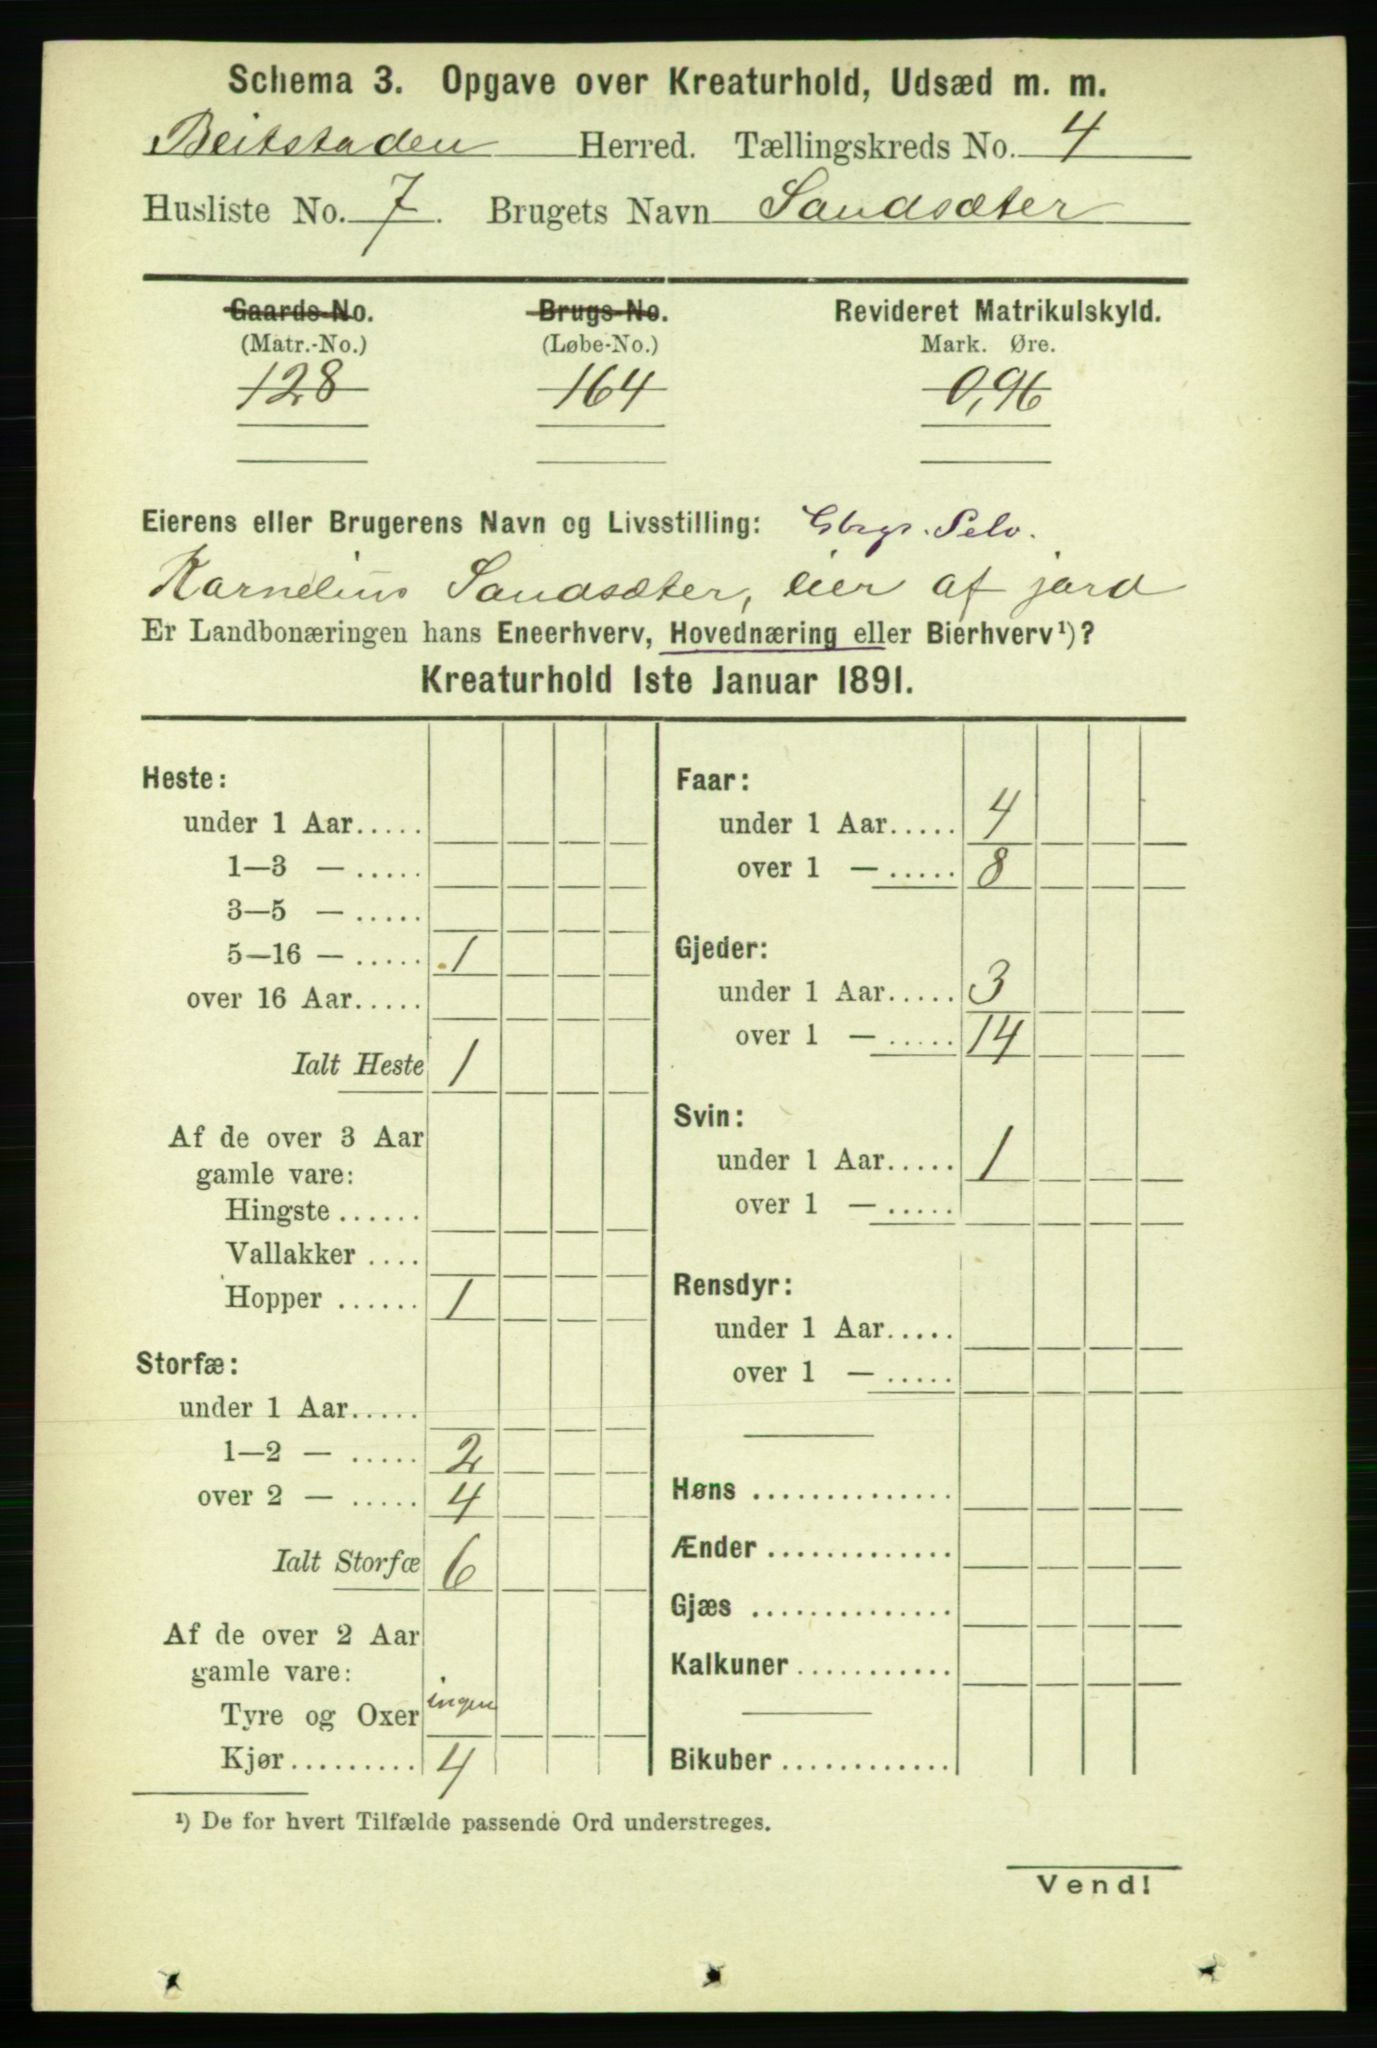 Schema 3. Opgave over Kreaturhold, Udsæd m. m.
Beitstaden Herred. Tællingskreds No. 4
Husliste No. 7. Brugets Navn Sandsæter
Gaards-No. Brugs-No. Revideret Matrikulskyld.
(Matr.-No.) (Løbe-No.) Mark. Øre.
128 164 0,96
Eierens eller Brugerens Navn og Livsstilling: Gbr. Selv.
Kornelius Sandsæter, eier af jord
Er Landbonæringen hans Eneerhverv, Hovednæring eller Bierhverv¹)?
Kreaturhold 1ste Januar 1891.
Heste:
under 1 Aar.....
1—3 — .....
3—5 — .....
5—16 — ..... 1
over 16 Aar.....
Ialt Heste 1
Af de over 3 Aar
gamle vare:
Hingste ......
Vallakker ....
Hopper ...... 1
Storfæ:
under 1 Aar.....
1—2 — ..... 2
over 2 — ..... 4
Ialt Storfæ 6
Af de over 2 Aar
gamle vare:
Tyre og Oxer ingen
Kjør......... 4
Faar:
under 1 Aar..... 4
over 1 — ..... 8
Gjeder:
under 1 Aar..... 3
over 1 — ..... 14
Svin:
under 1 Aar..... 1
over 1 — .....
Rensdyr:
under 1 Aar.....
over 1 — .....
Høns ..............
Ænder .............
Gjæs ..............
Kalkuner...........
Bikuber ............
¹) De for hvert Tilfælde passende Ord understreges.
Vend!